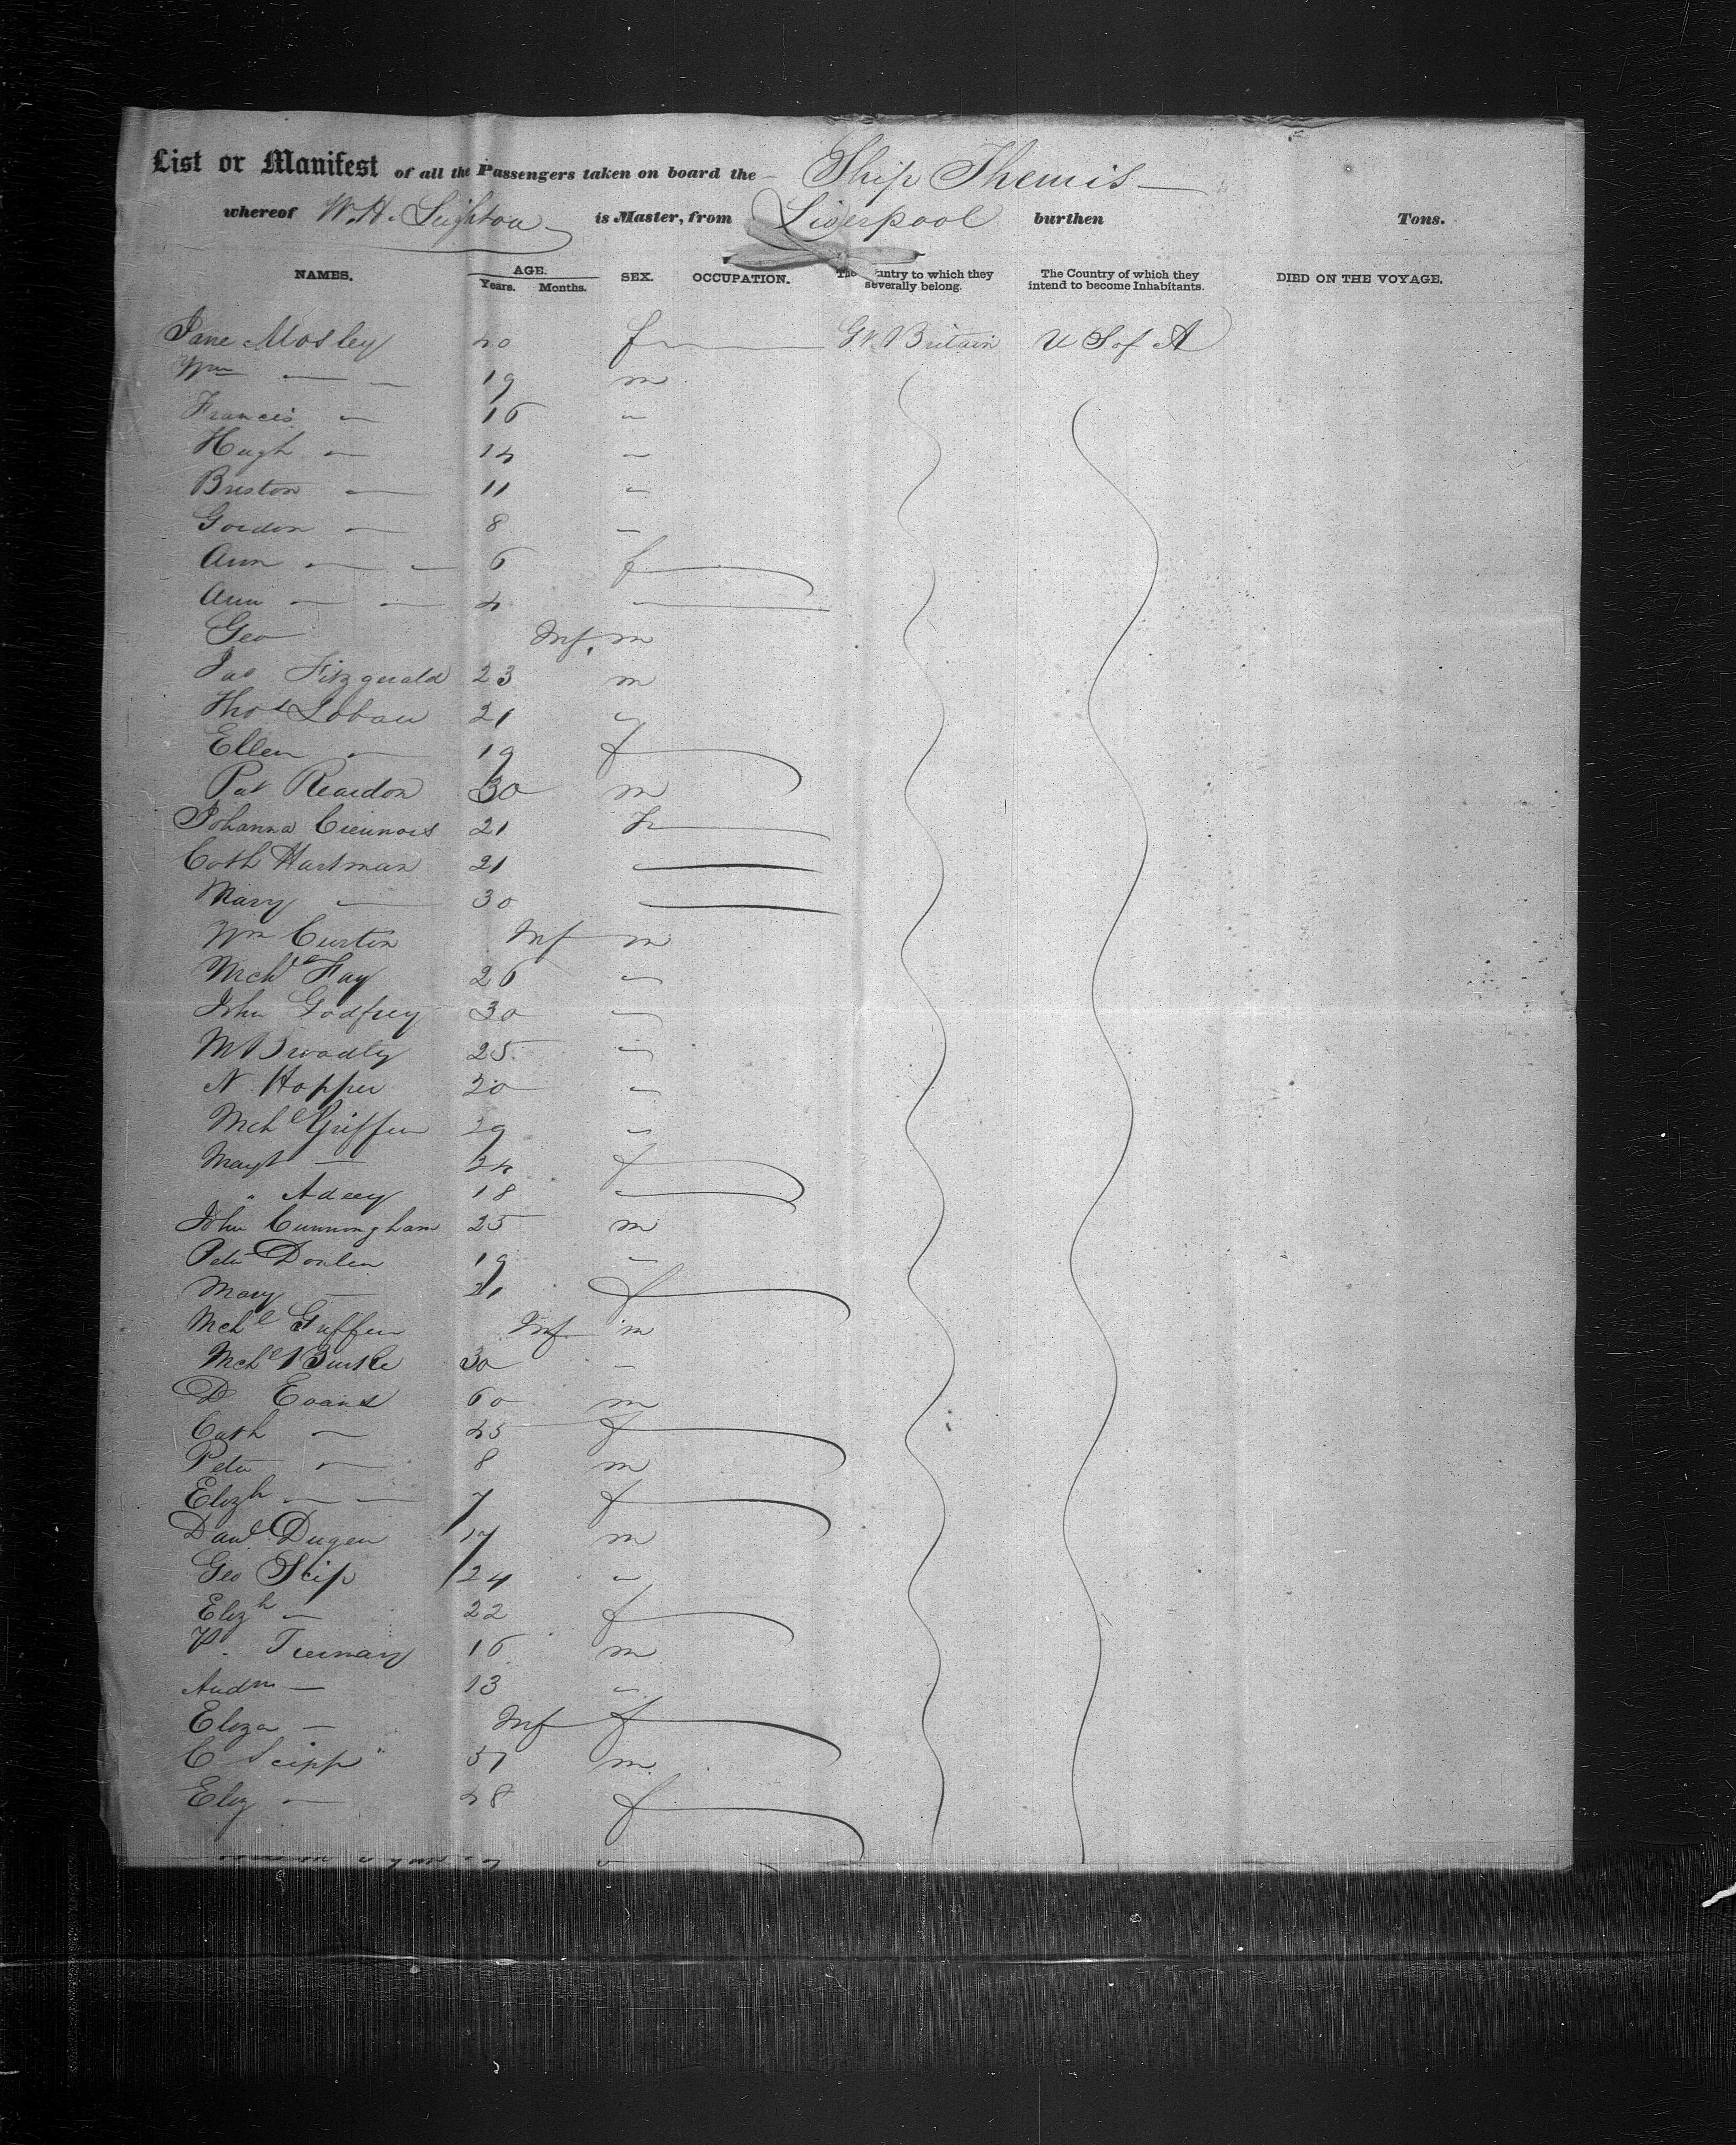 List or Manifest of all the Passengers taken on board the Ship Themis
whereof W. H. Leighton is Master, from Liverpool burthen Tons.
NAMES. AGE. Years. Months. SEX. OCCUPATION. The Country to which they severally belong. The Country of which they intend to become Inhabitants. DIED ON THE VOYAGE.
Jane Mosley 40 f Gt Britain U S of A
Wm — — 19 m
Francis — 16 "
Hugh — 14 "
Briston — 11 "
Gordon — 8 "
Ann — — 6 f
Ann — — 4 "
Geo Inf. m
Jas Fitzgerald 23 m
Thos 21 "
Ellen — 19 f
Pat Reardon 30 m
Johanna 21 f
Cath Hartman 21 "
Mary — 30 "
Wm Curtin Inf m
Mchl Fay 26 "
John Godfrey 30 "
M Broadly 25 "
N Hopper 20 "
Mchl Griffin 29 "
Margt — 24 f
" 18 "
John Cunningham 25 m
Peter Donlen 19 "
Mary — 21 f
Mchl Griffin Inf m
Mchl Burke 30 "
D Evans 60 m
Cath — 45 f
Peter — 8 m
Elizh — — 7 f
Danl Dugen 17 m
Geo Scip 24 "
Elizh — 22 f
P. Tiernary 16 m
Andw — 13 "
Eliza — Inf f
C Scipp 51 m
Eliz — 48 f